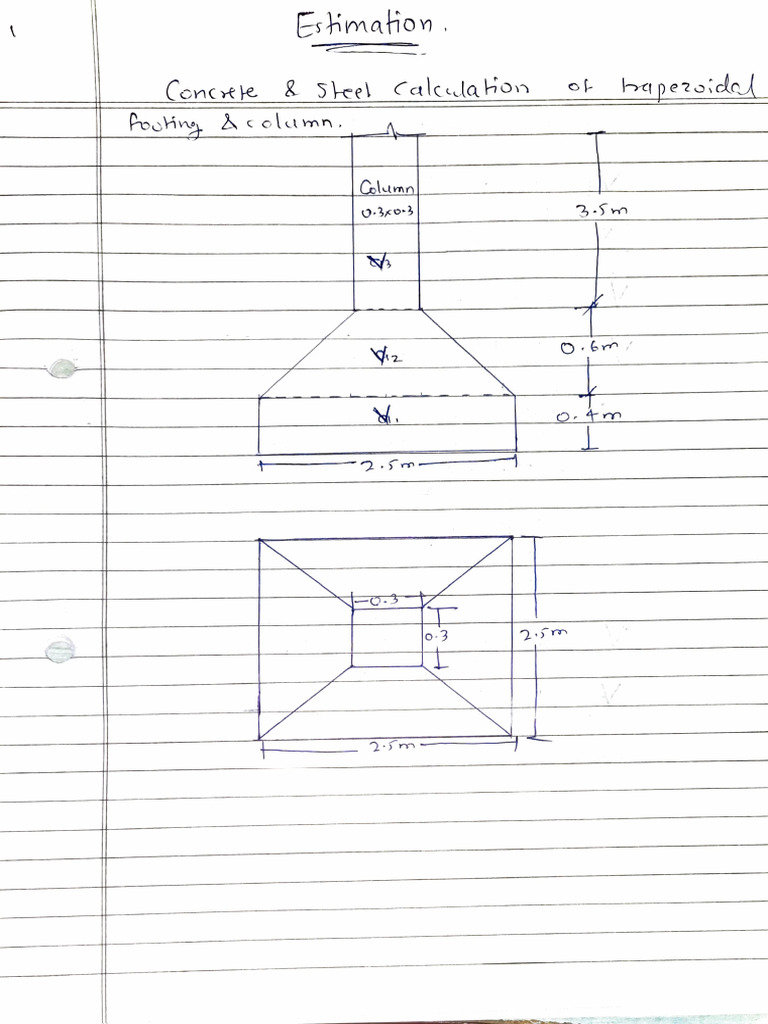 1
Estimation.
Concrete & Steel Calculation of trapezoidal
footing & column.
Column
0.3x0.3
3.5m
V3
0.6m
V2
V1.
0.4m
2.5m
0.3
0.3
2.5m
2.5m